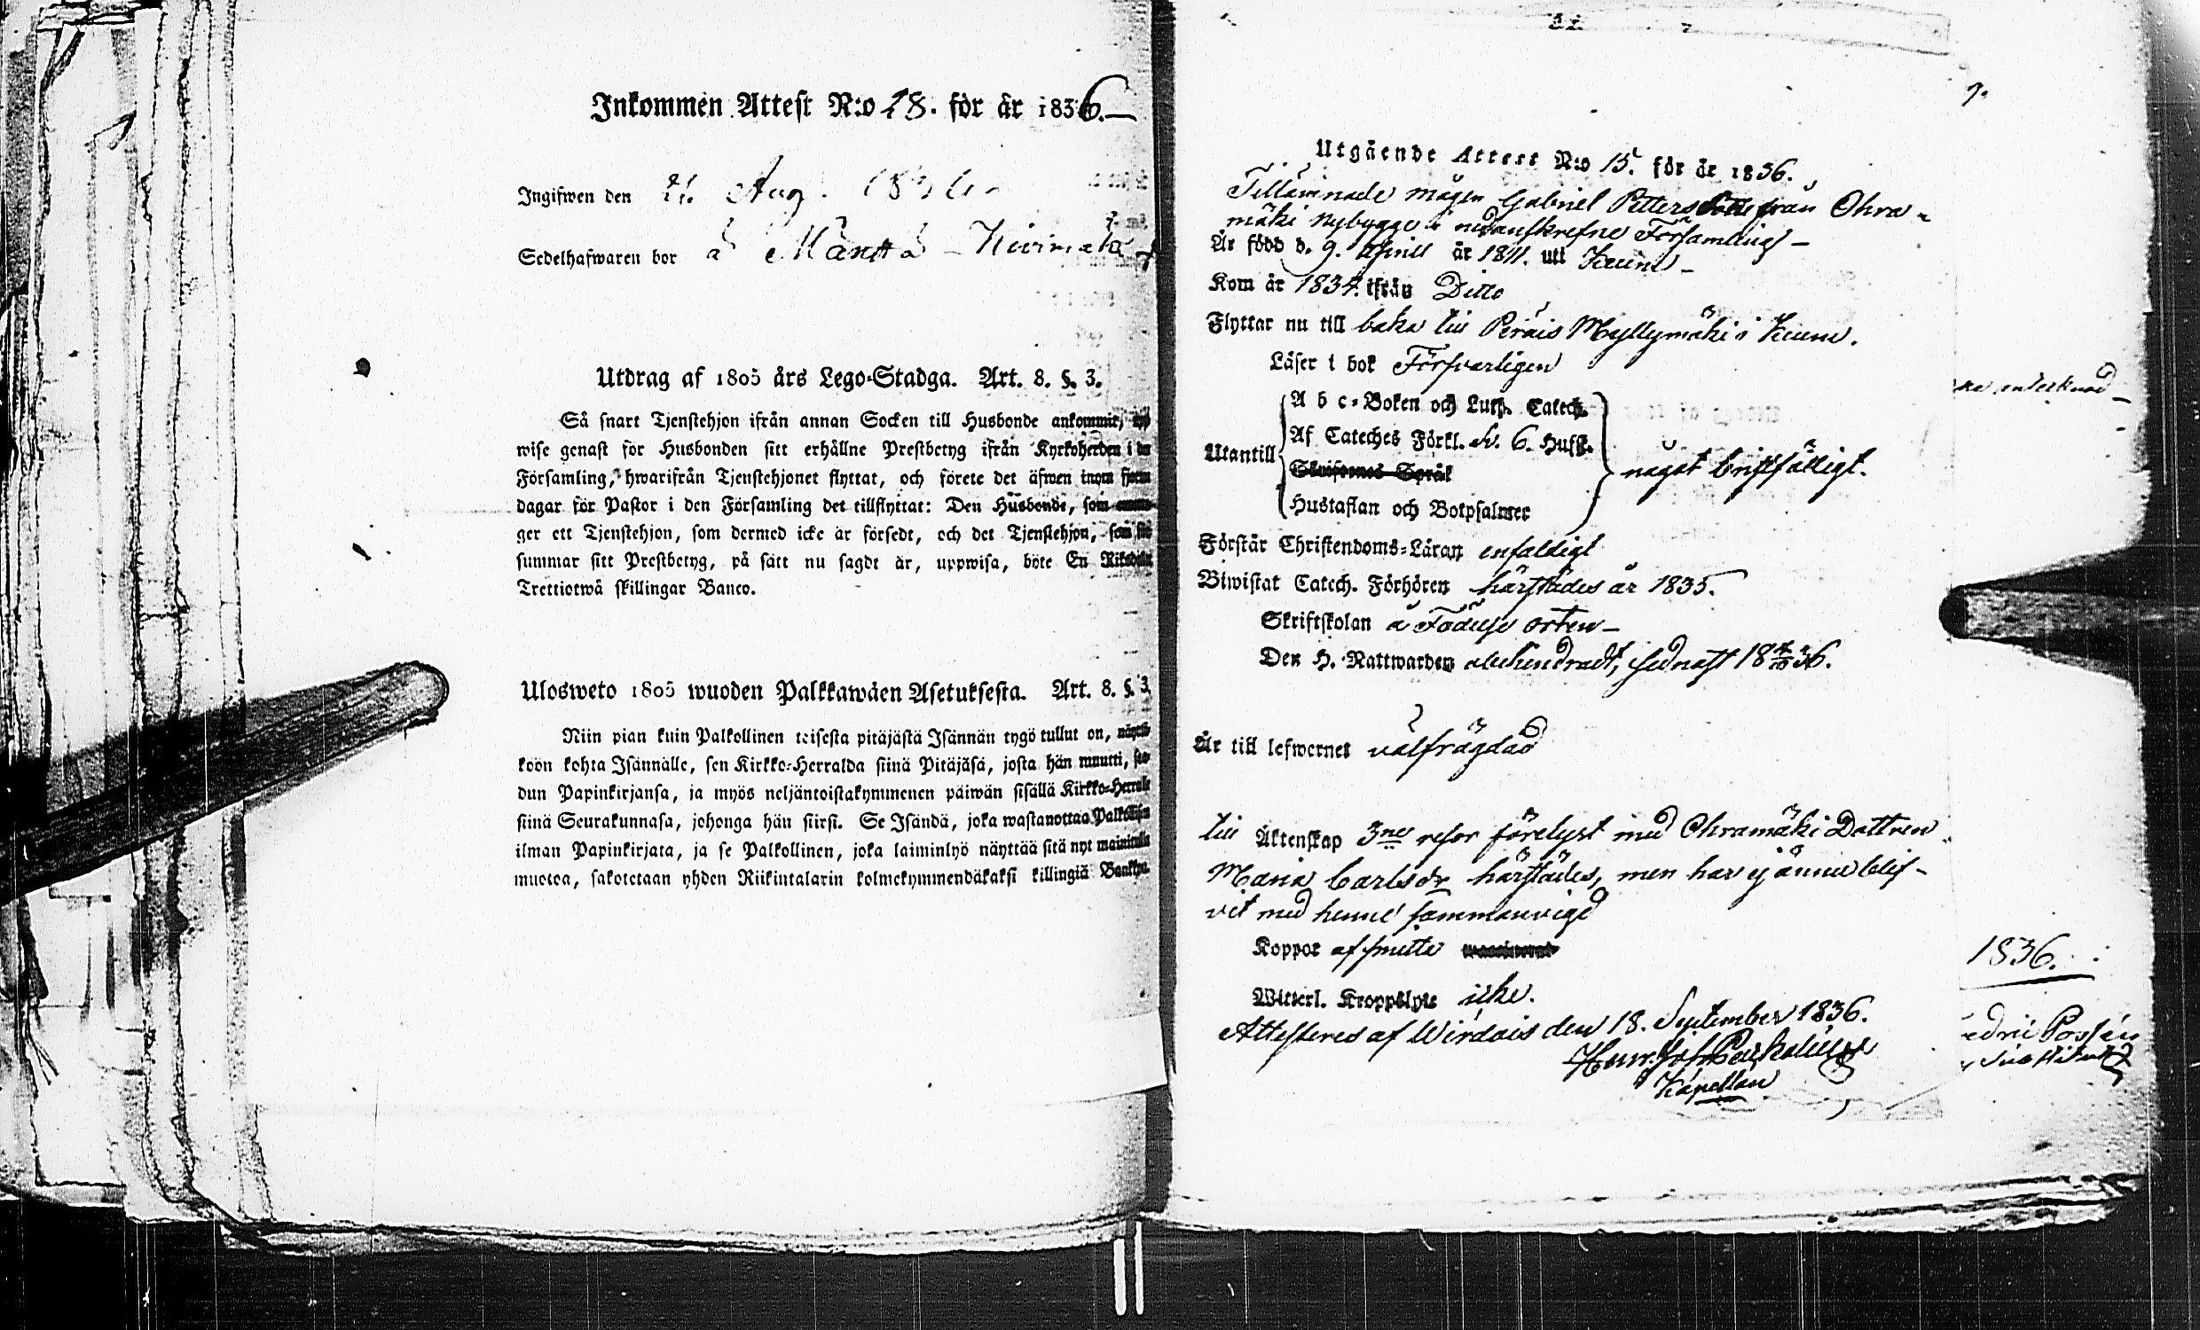 Inkommen Attest N:o 18. för år 1836.
Ingifwen den 21. Aug. 1836.
Sedelhafwaren bor å Mänttä - Kivimäki
Utdrag af 1805 års Lego-Stadga. Art. 8. §. 3.
Så snart Tjenstehjon ifrån annan Socken till Husbonde ankommit,
wise genast för Husbonden sitt erhållne Prestbetyg ifrån Kyrkoherden i
Församling, hwarifrån Tjenstehjonet flyttat, och förete det äfwen inom
dagar för Pastor i den Församling det tillflyttat: Den Husbonde, som
ger ett Tjenstehjon, som dermed icke är försedt, och det Tjenstehjon,
summar sitt Prestbetyg, på sätt nu sagdt är, uppwisa, böte En Riksdaler
Trettiotwå skillingar Banco.
Ulosweto 1805 wuoden Palkkawäen Asetuksesta. Art. 8. §. 3.
Niin pian kuin Palkollinen toisesta pitäjästä Isännän tygö tullut on,
köön kohta Isännälle, sen Kirkko-Herralda siinä Pitäjäsä, josta hän muutti,
dun Papinkirjansa, ja myös neljäntoistakymmenen päiwän sisällä Kirkko-Herralle
siinä Seurakunnasa, johonga hän siirsi. Se Isändä, joka wastanottaa
ilman Papinkirjata, ja se Palkollinen, joka laiminlyö näyttää sitä nyt mainitulla
muotoa, sakotetaan yhden Riikintalarin kolmekymmendäkaksi killingiä
9.
Utgående Attest N:o 15. för år 1836.
Tillämnade mågen Gabriel Petters från Ohra-
mäki nybygge i nedanskrefne Församling -
Är född d. 9. April år 1811. uti
Kom år 1834. ifrån Ditto
Flyttar nu till baka till Peräis Myllymäki i
Läser i bok Försvarligen
Utantill
A b c-Boken och Luth. Catech.
Af Cateches Förkl. 6. Hufst.
Skriftenes Språk
Hustaflan och Botpsalmer
något bristfälligt.
Förstår Christendoms-Läran enfaldigt
Biwistat Catech. Förhören härstädes år 1835.
Skriftskolan å Födelse orten -
Den H. Nattwarden sednast 18 36.
Är till lefwernet välfrägdad
till Äktenskap 3ne resor förelyst med Ohramäki Dottren
Maria Carlsdr härstädes, men har ej ännu blif-
vit med henne sammanvigd
Koppor af smitta
Witterl. Kroppslyte icke.
Attesteras af Wirdois den 18. September 1836.
Kapellan
1836.